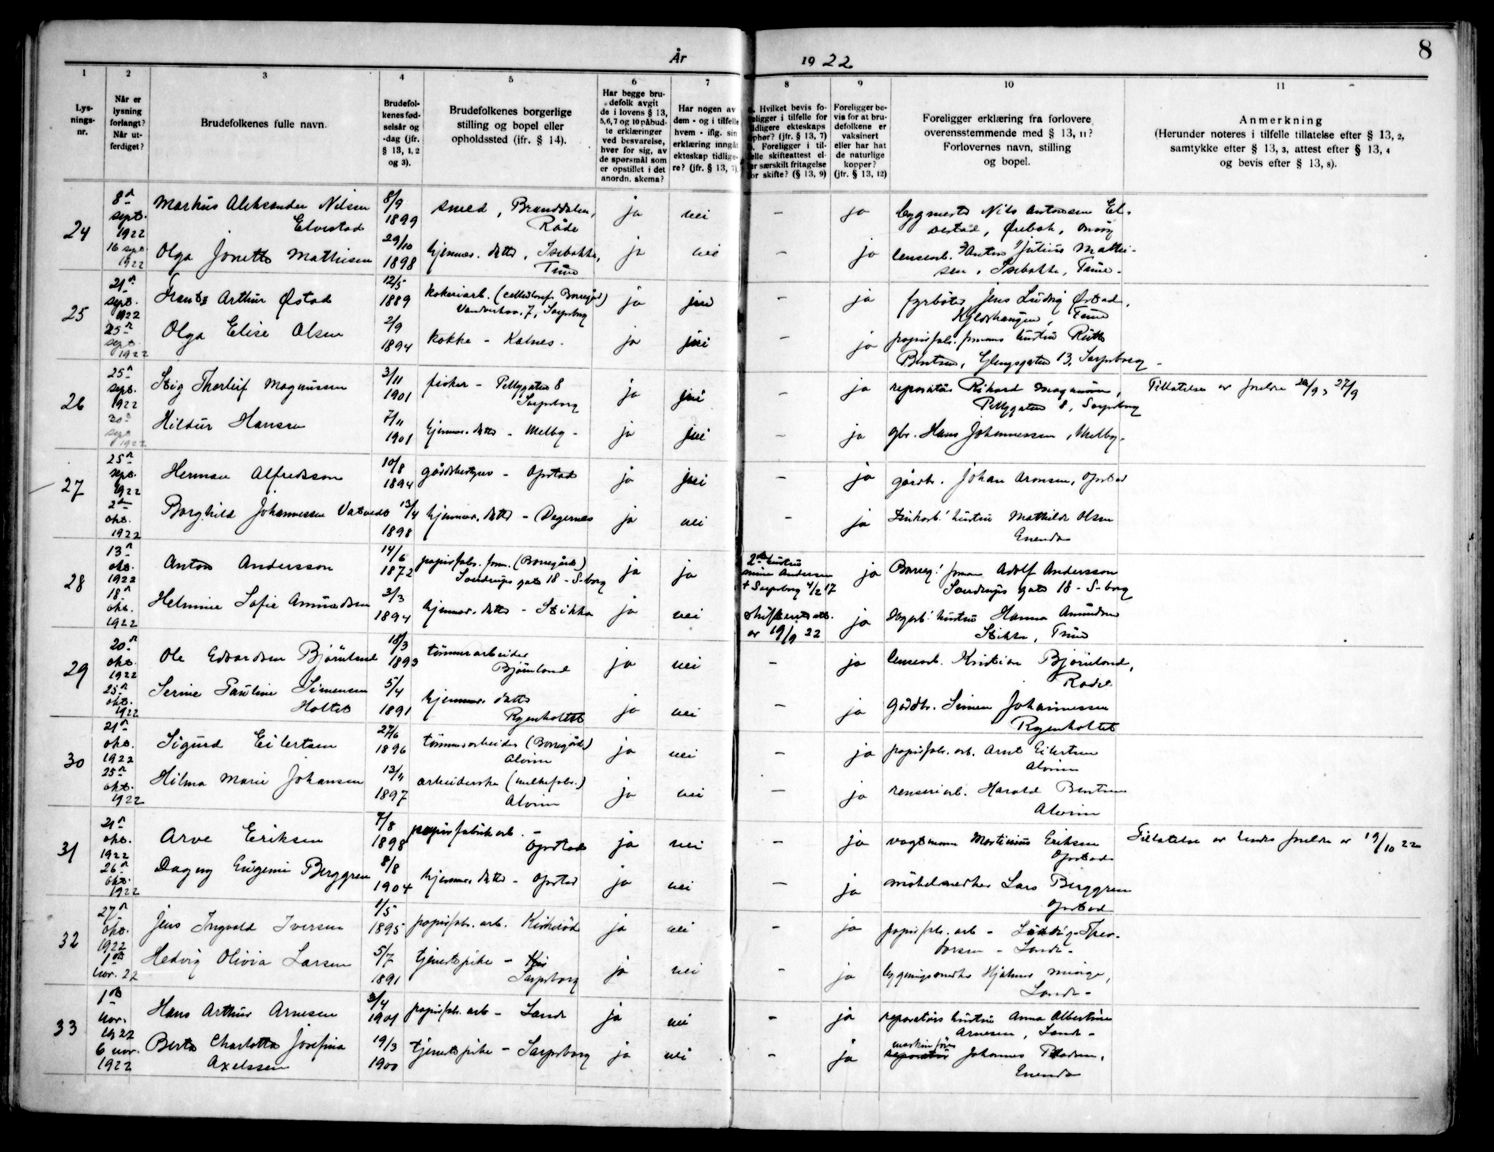 År 1922
8
1 2 3 4 5 6 7 8 9 10 11
Lysnings-nr.
Når er lysning forlangt? Når utferdiget?
Brudefolkenes fulle navn.
Brudefolkenes fødselsår og -dag (jfr. § 13, 1, 2 og 3).
Brudefolkenes borgerlige stilling og bopel eller opholdssted (jfr. § 14).
Har begge brudefolk avgit de i lovens § 13, 5, 6, 7 og 10 påbudte erklæringer ved besvarelse, hver for sig, av de spørsmål som er opstillet i det anordn. skema?
Har nogen av dem - og i tilfelle hvem - iflg. sin erklæring inngått ekteskap tidligere? (jfr. § 13, 7).
Hvilket bevis foreligger i tilfelle for tidligere ekteskaps ophør? (jfr. § 13, 7)
Foreligger i tilfelle skifteattest eller særskilt fritagelse for skifte? (§ 13, 9)
Foreligger bevis for at brudefolkene er vaksinert eller har hat de naturlige kopper? (jfr. § 13, 12)
Foreligger erklæring fra forlovere overensstemmende med § 13, 11? Forlovernes navn, stilling og bopel.
Anmerkning
(Herunder noteres i tilfelle tillatelse efter § 13, 2, samtykke efter § 13, 3, attest efter § 13, 4 og bevis efter § 13, 8).
24
8 sept. 1922
Markus Aleksander Nilsen Elvestad
8/9 1899
smed, Branddalen, Råde
ja nei - ja
bygmester Nils Antonsen Elvestad, Ørebek, Onsøy
16 sept. 1922
Olga Jonette Mathisen
29/10 1898
hjemmev. datter, Isebakke, Tune
ja nei - ja
lensearb. Anton Julius Mathisen, Isebakke, Tune.
25
21 sept. 1922
Arthur Østad
12/5 1889
ja - ja
fyrbøter Jens Ludvig Østad, Tune
25 sept. 1922
Olga Elise Olsen
2/9 1894
kokke - Kalnes.
ja - ja
Glengsgaten 13, Sarpsborg -
26
25 sept. 1922
Stig Thorleif Magnussen
3/11 1901
fisker - Pellygaten 8 Sarpsborg
ja - ja
reparatør Rikard Magnussen, Pellygaten 8, Sarpsborg
30 sept. 1922
Hildur Hanssen
7/11 1901
hjemmev. datter - Melby -
ja - ja
gbr. Hans Johannessen, Melby -
27
25 sept. 1922
Herman Alfredsson
10/8 1894
gårdsbestyrer - Opstad
ja - ja
gårdbr. Johan Aronsen, Opstad
2 okt. 1922
Borghild Johannessen
13/4 1898
hjemmev. datter - Dagernes
ja nei - ja
hustru Mathilde Olsen
28
13 okt. 1922
Anton Andersson
14/6 1872
papirfabr. form. (Borregård)
gate 18 - S-borg
ja ja
2 hustru Andersen + Sarpsborg 4/2 17
ja
Borreg. form. Adolf Andersson
gate 18 - S-borg
18 okt. 1922
Helmine Sofie Amundsen
3/3 1894
hjemmev. datter - Stikka
ja nei
er 19/9 22
ja
hustru Hanna Amundsen Stikka, Tune
29
20 okt. 1922
Ole Edvardsen Bjørnland
18/3 1893
tømmerarbeider Bjørnland
ja nei - ja
lensearb. Kristian Bjørnland, Råde
25 okt. 1922
Serine Pauline Simensen Holtet
5/4 1891
hjemmev. datter Rygenholtet
ja nei - ja
gårdbr. Simen Johannessen Rygenholtet
30
21 okt. 1922
Sigurd Eilertsen
27/6 1896
tømmerarbeider (Borregård) Alvim
ja nei - ja
papirfabr. arb. Arnt Eilertsen Alvim
25 okt. 1922
Hilma Marie Johansen
13/11 1897
arbeiderske Alvim
ja nei - ja
renseriarb. Harald Bentsen Alvim
31
21 okt. 1922
Arve Eriksen
7/8 1898
papirfabrikarb. - Opstad
ja nei - ja
vagtmann Martinius Eriksen Opstad
Tillatelse er 19/10 22
26 okt. 1922
Dagny Eugenie Berggren
8/8 1904
hjemmev. datter - Opstad
ja nei - ja
møbelsnedker Lars Berggren Opstad
32
27 okt. 1922
Jens Ingvald Iversen
1/5 1895
papirfabr. arb.
ja nei - ja
papirfabr. arb - Ludvig Thorvorsen - Lande -
1 nov. 22
Hedvig Olivia Larsen
5/7 1891
tjenestepike - Sarpsborg
ja nei - ja
bygningssnedker Hjalmar Minge, Lande -
33
1 nov. 1922
Hans Arthur Arnesen
3/4 1901
papirfabr. arb - Lande
ja nei - ja
reparatørs hustru Anna Albertine Arnesen, Lande -
6 nov. 1922
Berta Charlotta Josefina Axelssen
19/3 1900
tjenestepike - Sarpsborg
ja nei - ja
reparatør Johannes